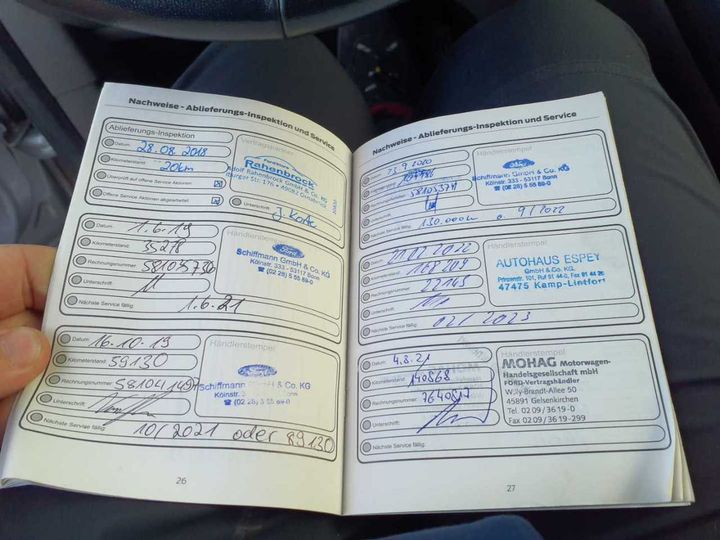 Nachweise - Ablieferungs-Inspektion und Service
Ablieferungs-Inspektion
Datum: 28.08.2018
Kilometerstand: 20km
Überprüft auf offene Service Aktionen
Offene Service Aktionen abgearbeitet
Vertragspartner
Rahenbrock
Adolf Rahenbrock GmbH & Co. KG
Unterschrift: J. Korte
Datum: 1.6.19
Kilometerstand: 35218
Rechnungsnummer: 581035730
Unterschrift:
Nächste Service fällig: 1.6.21
Händlerstempel
Ford
Schiffmann GmbH & Co. KG
Kölnstr. 333 - 53117 Bonn
☎ (02 28) 5 55 89-0
Datum: 16.10.19
Kilometerstand: 59130
Rechnungsnummer:
Unterschrift:
Nächste Service fällig: 10/2021 oder 89130
Händlerstempel
Ford
Schiffmann GmbH & Co. KG
Kölnstr. 333 - 53117 Bonn
☎ (02 28) 5 55 89-0
26
Nachweise - Ablieferungs-Inspektion und Service
Händlerstempel
Ford
Schiffmann GmbH & Co. KG
Kölnstr. 333 - 53117 Bonn
☎ (02 28) 5 55 89-0
Nächste Service fällig: 130.000km o. 9/2022
Datum:
Kilometerstand: 167209
Rechnungsnummer: 22145
Unterschrift:
Nächste Service fällig: 02/2023
Händlerstempel
AUTOHAUS ESPEY
GmbH & Co. KG
Prinzenstr. 101, Ruf 51 44-0, Fax 51 44 26
47475 Kamp-Lintfort
Datum: 4.8.21
Kilometerstand: 140868
Rechnungsnummer:
Unterschrift:
Nächste Service fällig:
Händlerstempel
MOHAG Motorwagen-
Handelsgesellschaft mbH
FORD-Vertragshändler
Willy-Brandt-Allee 50
45891 Gelsenkirchen
Tel. 02 09 / 36 19-0
Fax 02 09 / 36 19-299
27